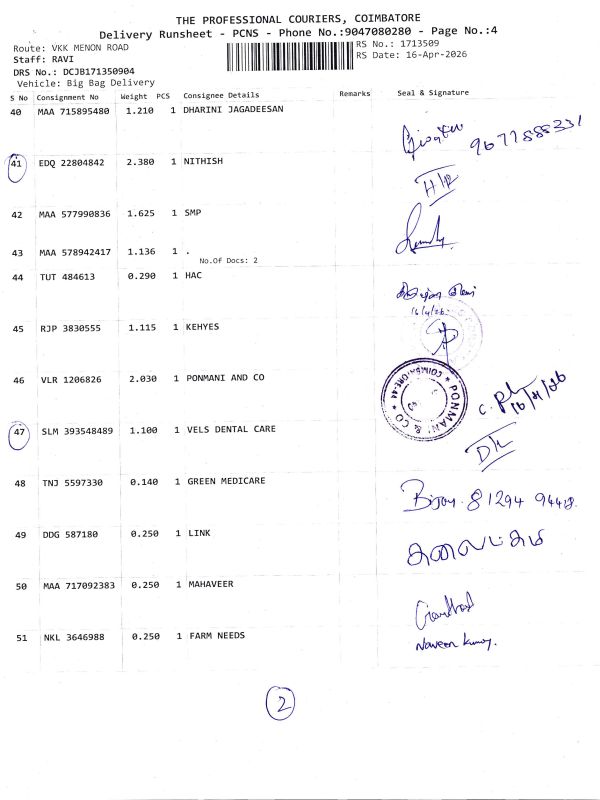 THE PROFESSIONAL COURIERS, COIMBATORE
Delivery Runsheet - PCNS - Phone No.:9047080280 - Page No.:4
Route: VKK MENON ROAD
RS No.: 1713509
Staff: RAVI
RS Date: 16-Apr-2026
DRS No.: DCJB171350904
Vehicle: Big Bag Delivery
S No Consignment No Weight PCS Consignee Details Remarks Seal & Signature
40 MAA 715895480 1.210 1 DHARINI JAGADEESAN
9677888331
41 EDQ 22804842 2.380 1 NITHISH
42 MAA 577990836 1.625 1 SMP
43 MAA 578942417 1.136 1 .
No.Of Docs: 2
44 TUT 484613 0.290 1 HAC
16/4/26
45 RJP 3830555 1.115 1 KEHYES
46 VLR 1206826 2.030 1 PONMANI AND CO
PONMANI & CO ★ COIMBATORE-44 ★
16/4/26
47 SLM 393548489 1.100 1 VELS DENTAL CARE
D/L
48 TNJ 5597330 0.140 1 GREEN MEDICARE
Bijoy 81294 94418
49 DDG 587180 0.250 1 LINK
50 MAA 717092383 0.250 1 MAHAVEER
51 NKL 3646988 0.250 1 FARM NEEDS
Naveen Kumar.
2